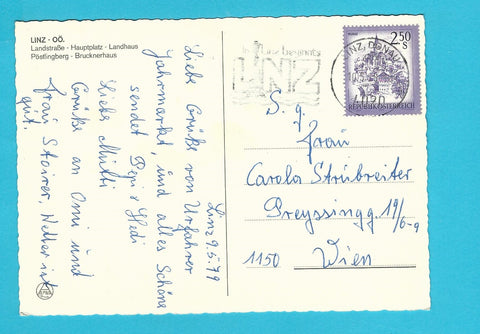 LINZ - OÖ.
Landstraße · Hauptplatz · Landhaus
Pöstlingberg · Brucknerhaus
Linz 9.5.79
Liebe Grüße von Urfahrer
Jahrmarkt, und alles Schöne
sendet Pepi & Hedi
Liebe Mutti
Grüße an Omi und
Frau Stoirer, Wetter ist
gut.
LINZ
LINZ, DONAU
4020
2.50
S
REPUBLIK ÖSTERREICH
S. g.
Frau
Carola Strubreiter
Preyssingg 19/6-9
1150 Wien